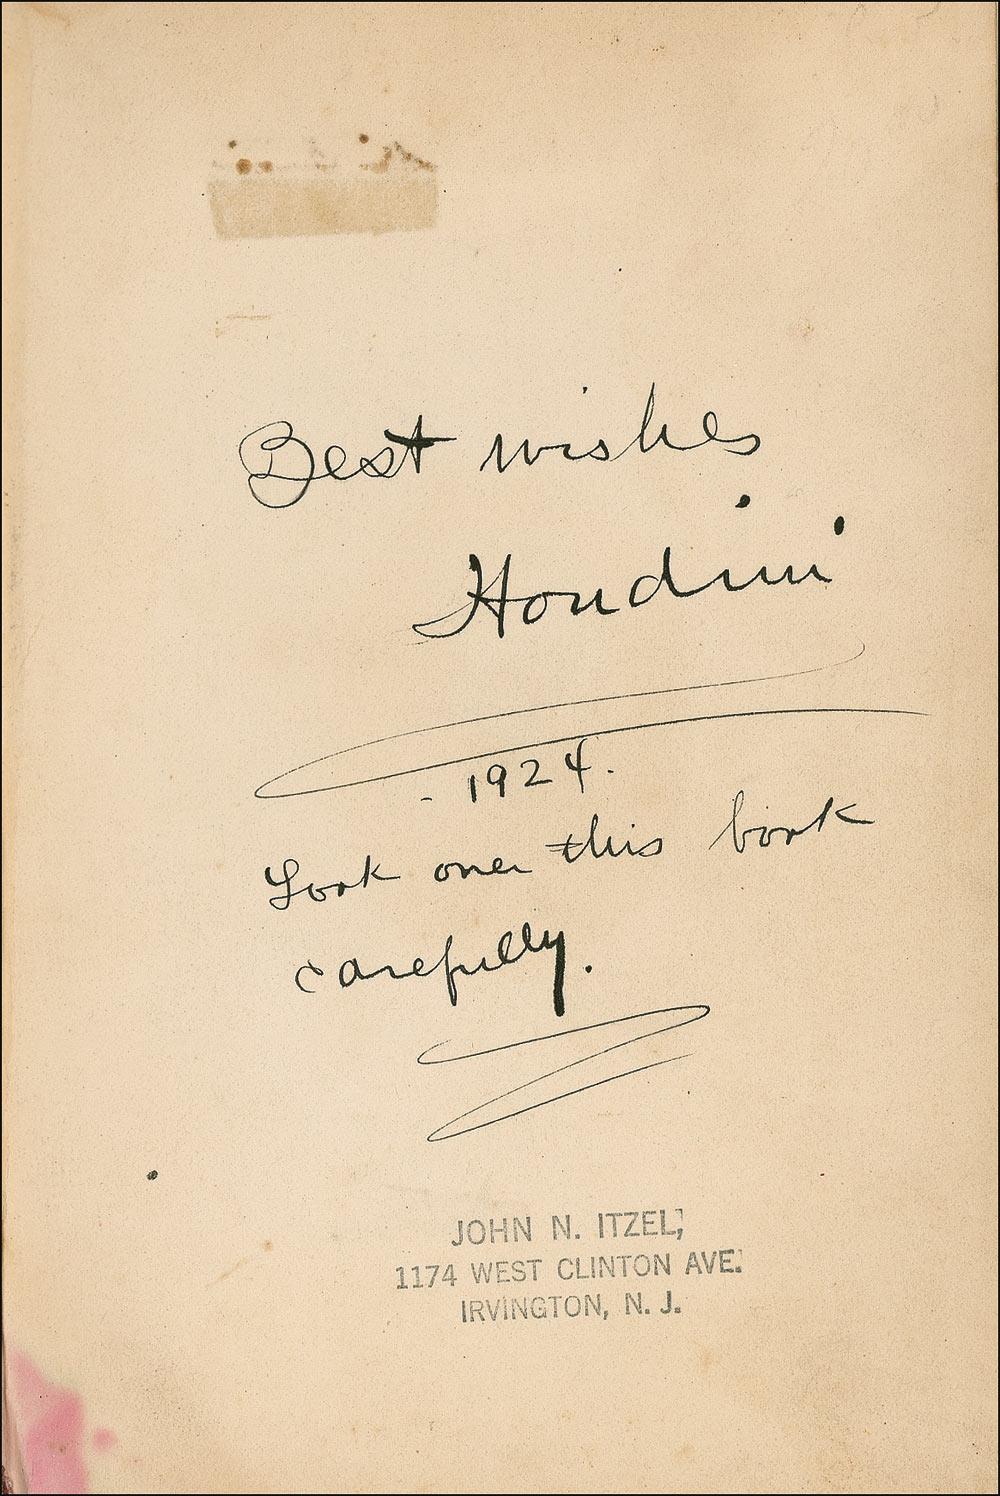 Best wishes
Houdini
- 1924.
Look over this book
carefully.
JOHN N. ITZEL,
1174 WEST CLINTON AVE.
IRVINGTON, N. J.